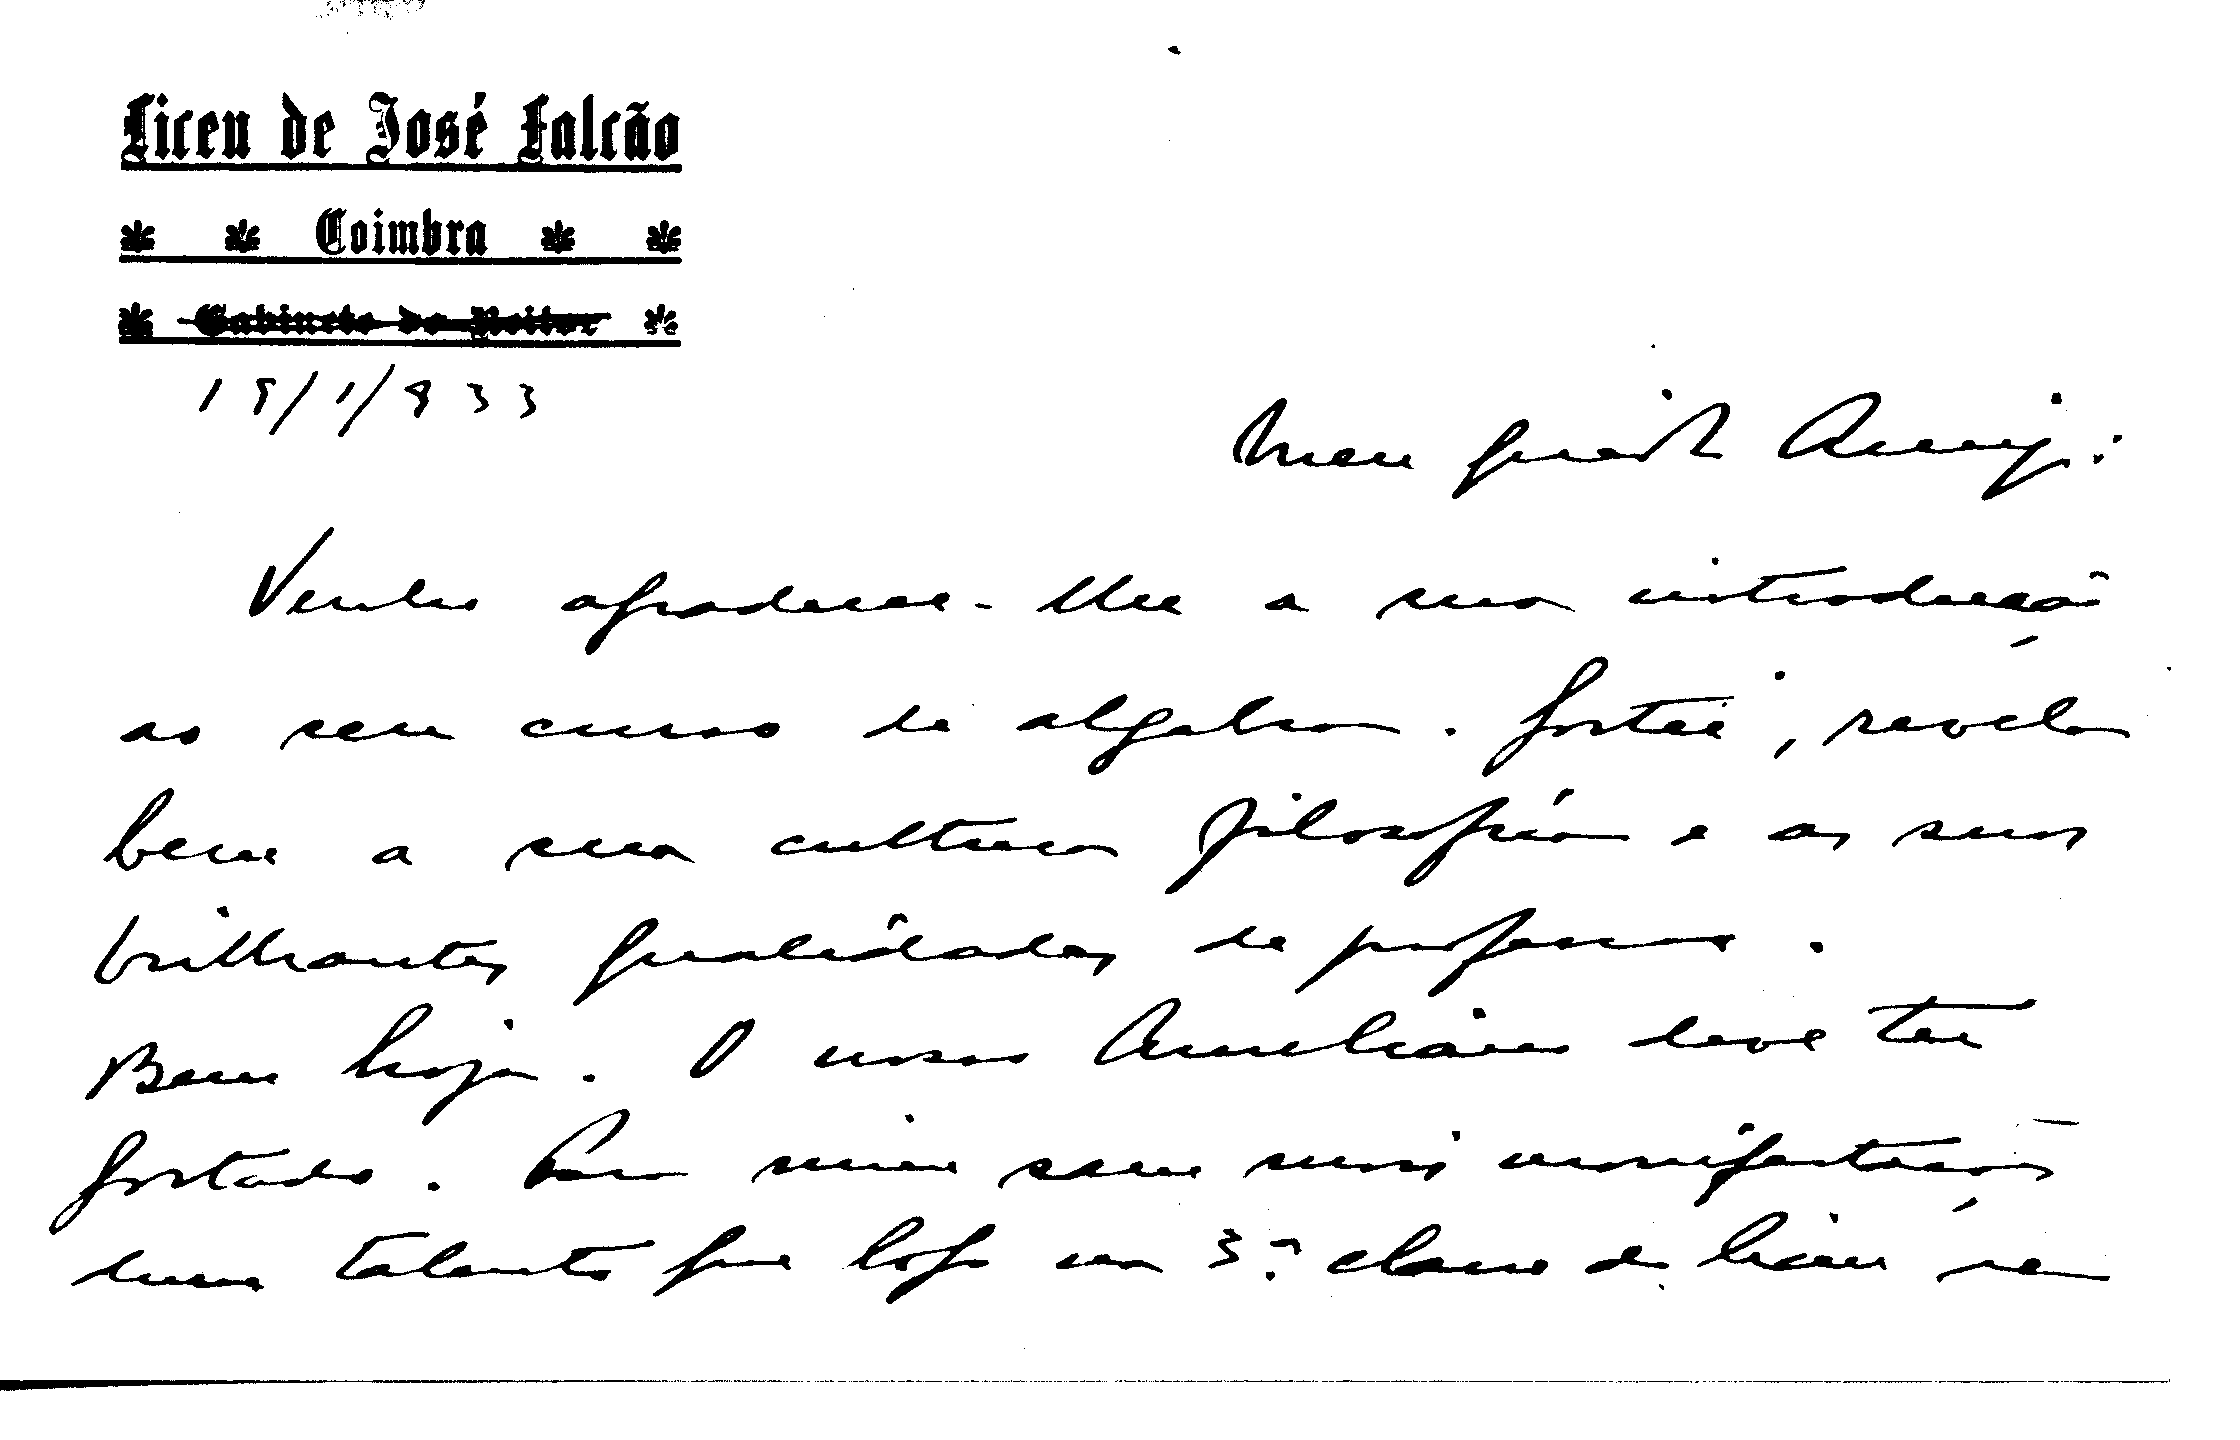 Liceu de José Falcão
Coimbra
Gabinete do Reitor
19/1/933
Meu querido Amigo:
Venho agradecer-lhe a sua introdução
ao seu curso de algebra. Gostei, revela
bem a sua cultura filosófica e as suas
brilhantes qualidades de professor.
Bem haja. O nosso Aureliano deve ter
gostado. Para mim são mais manifestações
dum talento que logo na 3.ª classe do liceu se